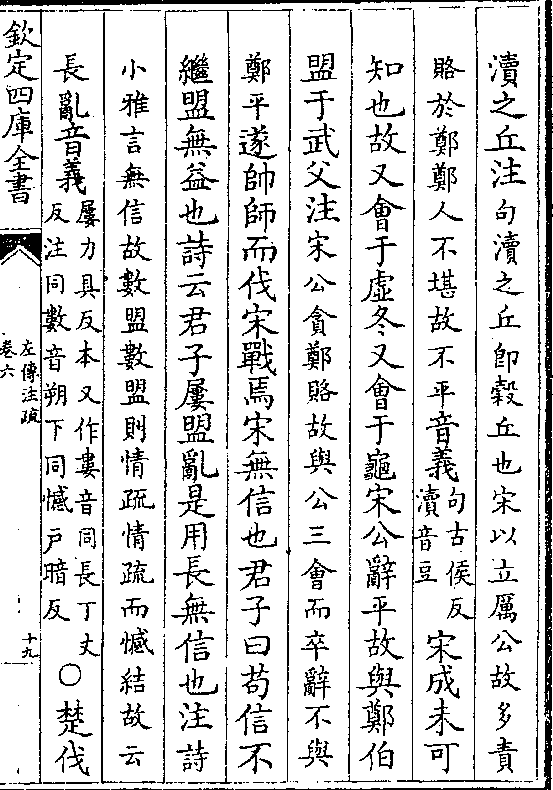 瀆之丘注句瀆之丘即穀丘也宋以立厲公故多責
賂於鄭鄭人不堪故不平音義句古侯反瀆音豆宋成未可
知也故又會于虛冬又會于龜宋公辭平故與鄭伯
盟于武父注宋公貪鄭賂故與公三會而卒辭不與
鄭平遂帥師而伐宋戰焉宋無信也君子曰苟信不
繼盟無益也詩云君子屢盟亂是用長無信也注詩
小雅言無信故數盟數盟則情疏情疏而憾結故云
長亂音義屢力具反本又作婁音同長丁丈反注同數音朔下同憾戸暗反○楚伐
欽定四庫全書
左傳注疏
卷六
十九